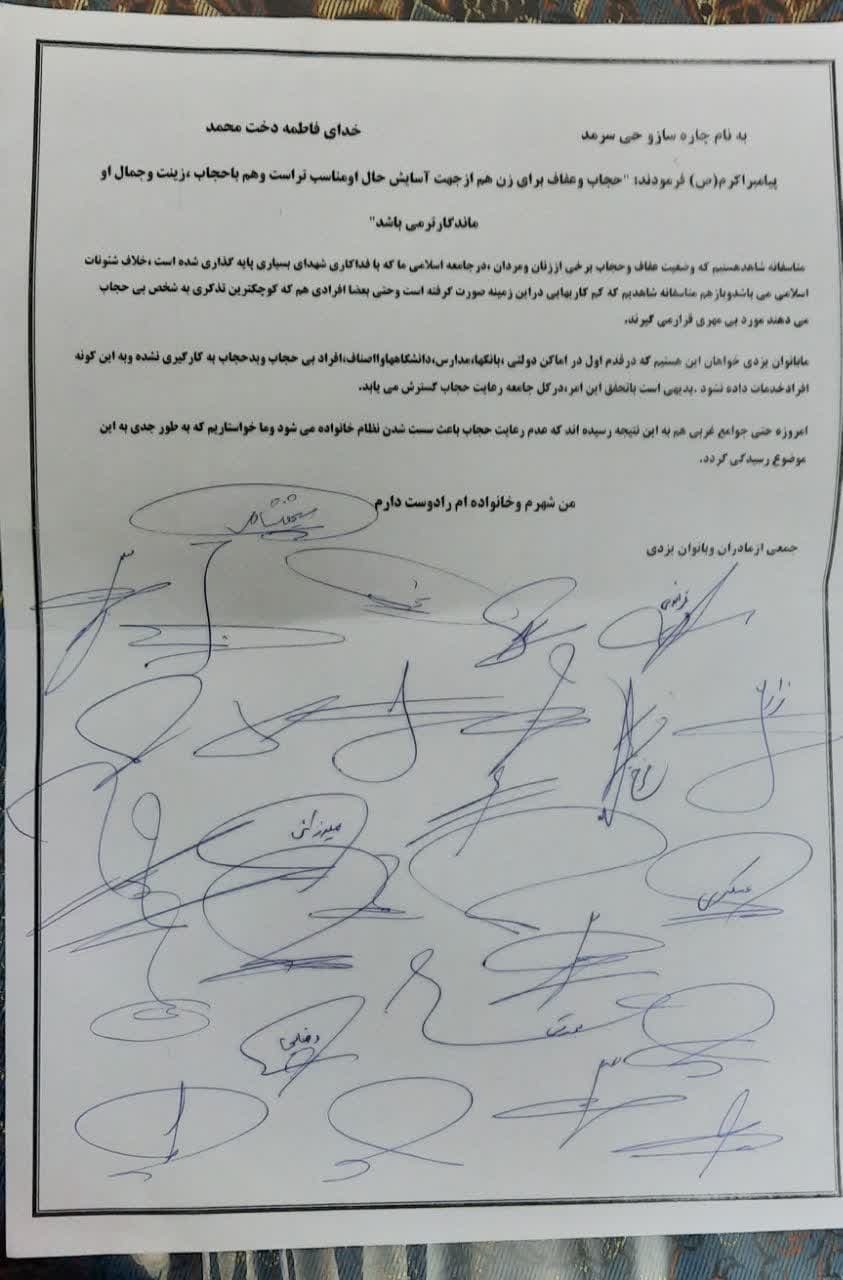 به نام چاره سازو حی سرمد خدای فاطمه دخت محمد
پیامبراکرم(ص) فرمودند: "حجاب وعفاف برای زن هم ازجهت آسایش حال اومناسب تراست وهم باحجاب ،زینت وجمال او
ماندگارترمی باشد"
متاسفانه شاهدهستیم که وضعیت عفاف وحجاب برخی اززنان ومردان ،درجامعه اسلامی ما که با فداکاری شهدای بسیاری پایه گذاری شده است ،خلاف شئونات
اسلامی می باشدوبازهم متاسفانه شاهدیم که کم کاریهایی دراین زمینه صورت گرفته است وحتی بعضا افرادی هم که کوچکترین تذکری به شخص بی حجاب
می دهند مورد بی مهری قرارمی گیرند.
مابانوان یزدی خواهان این هستیم که درقدم اول در اماکن دولتی ،بانکها،مدارس،دانشگاههاوااصناف،افراد بی حجاب وبدحجاب به کارگیری نشده وبه این گونه
افرادخدمات داده نشود .بدیهی است باتحقق این امر،درکل جامعه رعایت حجاب گسترش می یابد.
امروزه حتی جوامع غربی هم به این نتیجه رسیده اند که عدم رعایت حجاب باعث سست شدن نظام خانواده می شود وما خواستاریم که به طور جدی به این
موضوع رسیدگی گردد.
من شهرم وخانواده ام رادوست دارم
جمعی ازمادران وبانوان یزدی
عسکری